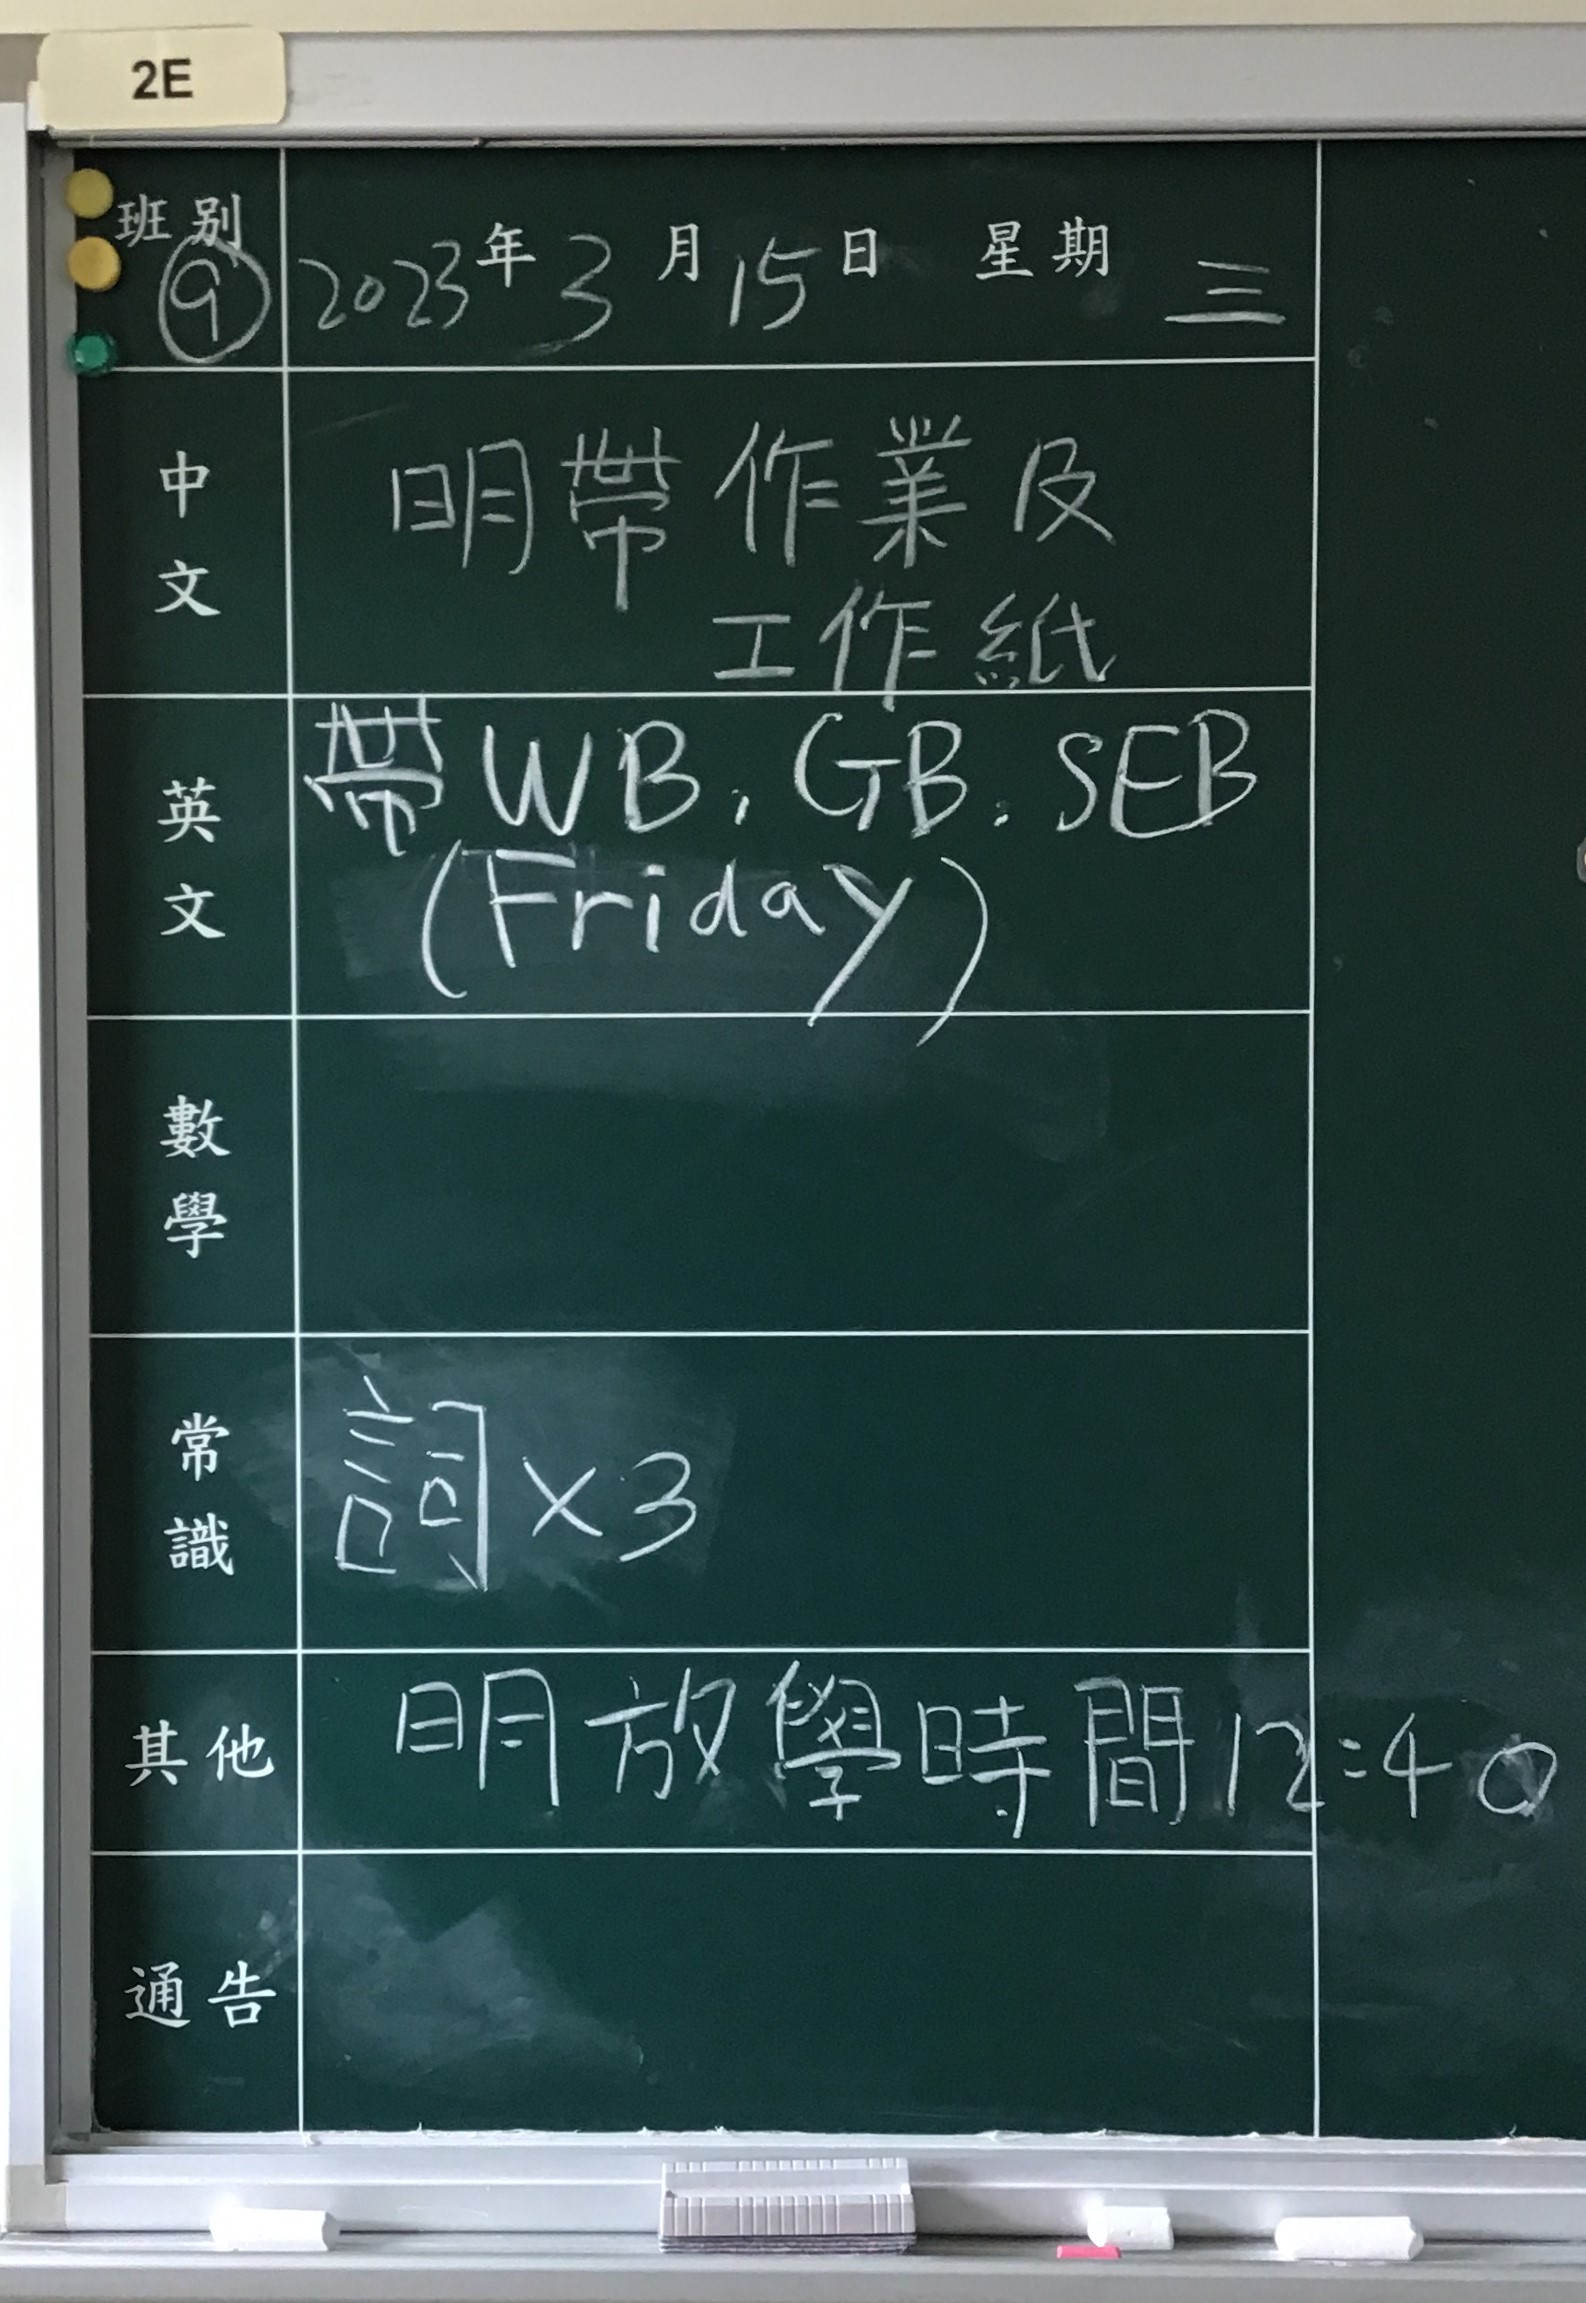 2E
班別
⑨
2023年3月15日 星期三
中文
明帶作業及
工作紙
英文
帶WB, GB, SEB
(Friday)
數學
常識
詞×3
其他
明放學時間12:40
通告